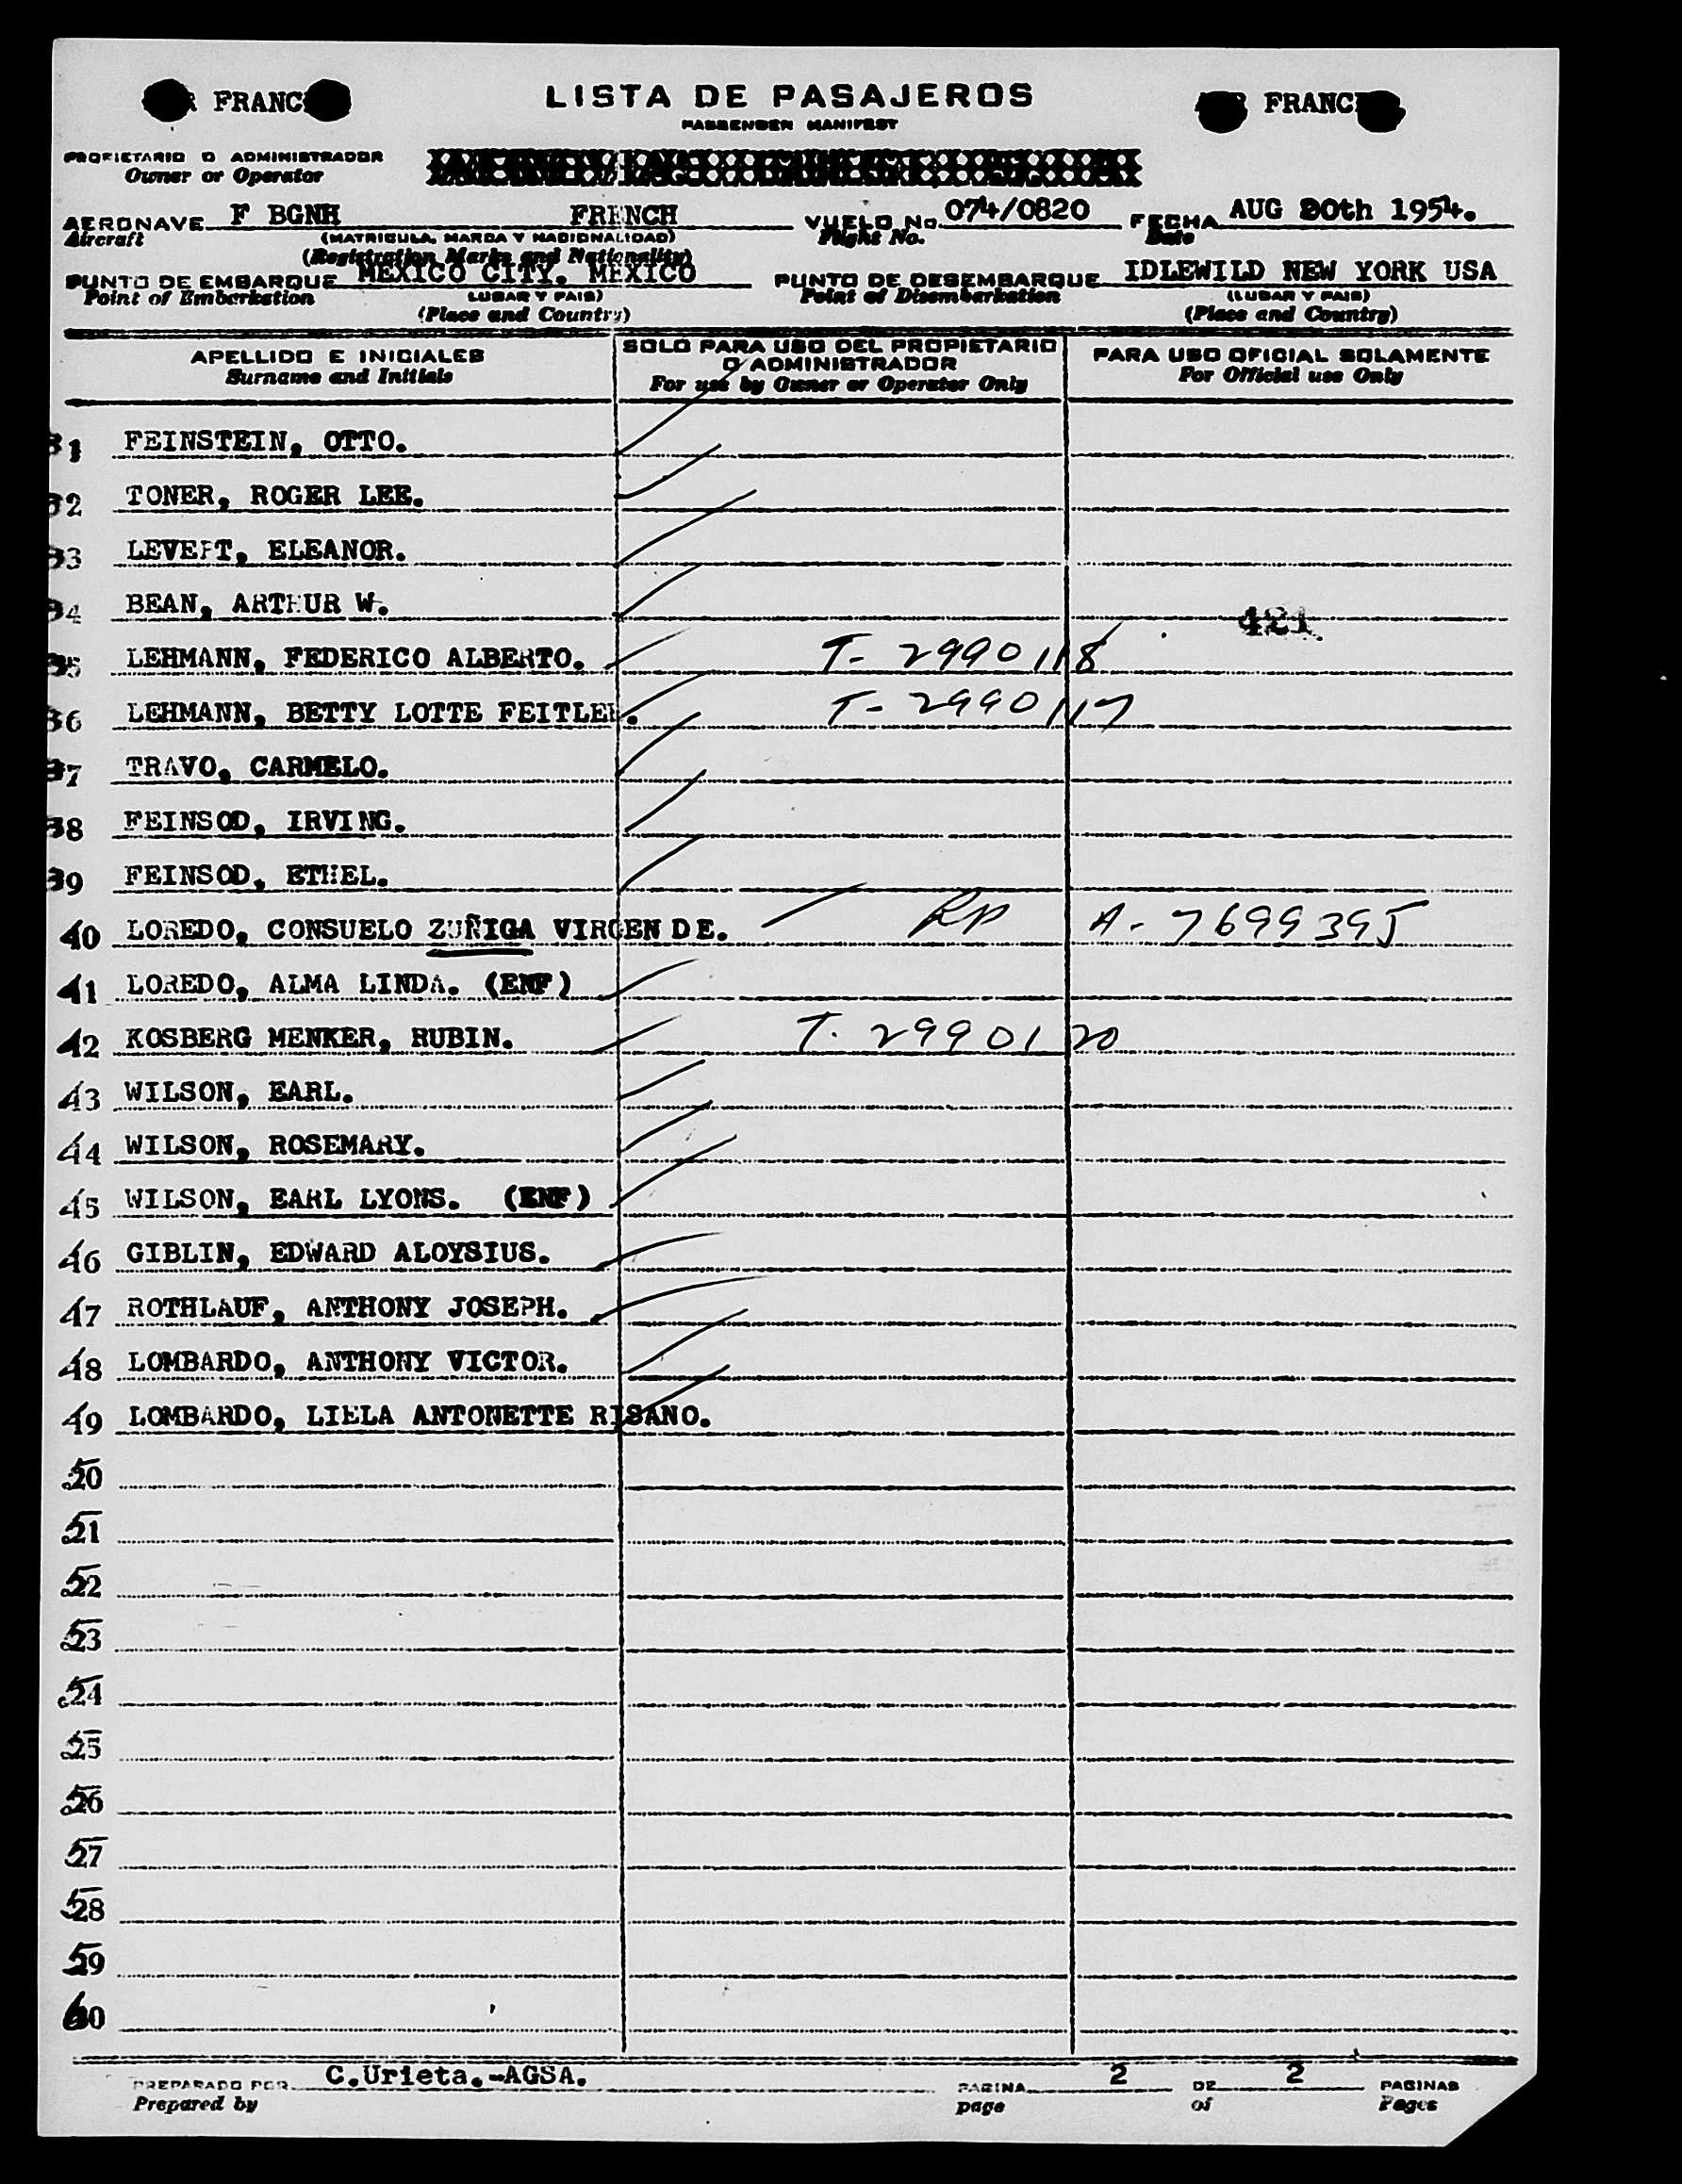 AIR FRANCE
LISTA DE PASAJEROS
AIR FRANCE
PASSENGER MANIFEST
PROPIETARIO O ADMINISTRADOR
Owner or Operator
AERONAVE F BGNH FRENCH VUELO No. 074/0820 FECHA AUG 20th 1954.
Aircraft (MATRICULA, MARCA Y NACIONALIDAD) Flight No. Date
(Registration Marks and Nationality)
PUNTO DE EMBARQUE MEXICO CITY. MEXICO PUNTO DE DESEMBARQUE IDLEWILD NEW YORK USA
Point of Embarkation LUGAR Y PAIS) Point of Disembarkation (LUGAR Y PAIS)
(Place and Country) (Place and Country)
APELLIDO E INICIALES
Surname and Initials
SOLO PARA USO DEL PROPIETARIO
O ADMINISTRADOR
For use by Owner or Operator Only
PARA USO OFICIAL SOLAMENTE
For Official use Only
31 FEINSTEIN, OTTO.
32 TONER, ROGER LEE.
33 ELEANOR.
34 BEAN, ARTHUR W.
421
35 LEHMANN, FEDERICO ALBERTO. T- 2990118
36 LEHMANN, BETTY LOTTE FEITLER. T- 2990117
37 TRAVO, CARMELO.
38 FEINSOD, IRVING.
39 FEINSOD, ETHEL.
40 LOREDO, CONSUELO ZUÑIGA VIRGEN DE. RP A- 7699395
41 LOREDO, ALMA LINDA. (ENF)
42 KOSBERG MENKER, RUBIN. T. 2990120
43 WILSON, EARL.
44 WILSON, ROSEMARY.
45 WILSON, EARL LYONS. (ENF)
46 GIBLIN, EDWARD ALOYSIUS.
47 ROTHLAUF, ANTHONY JOSEPH.
48 LOMBARDO, ANTHONY VICTOR.
49 LOMBARDO, LIELA ANTONETTE RISANO.
50
51
52
53
54
55
56
57
58
59
60
PREPARADO POR C.Urieta.-AGSA. PAGINA 2 DE 2 PAGINAS
Prepared by page of Pages